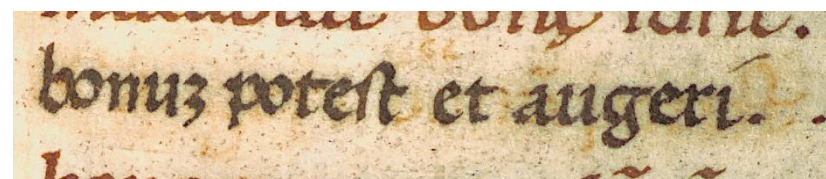 bonuꝫ poteſt et augeri.